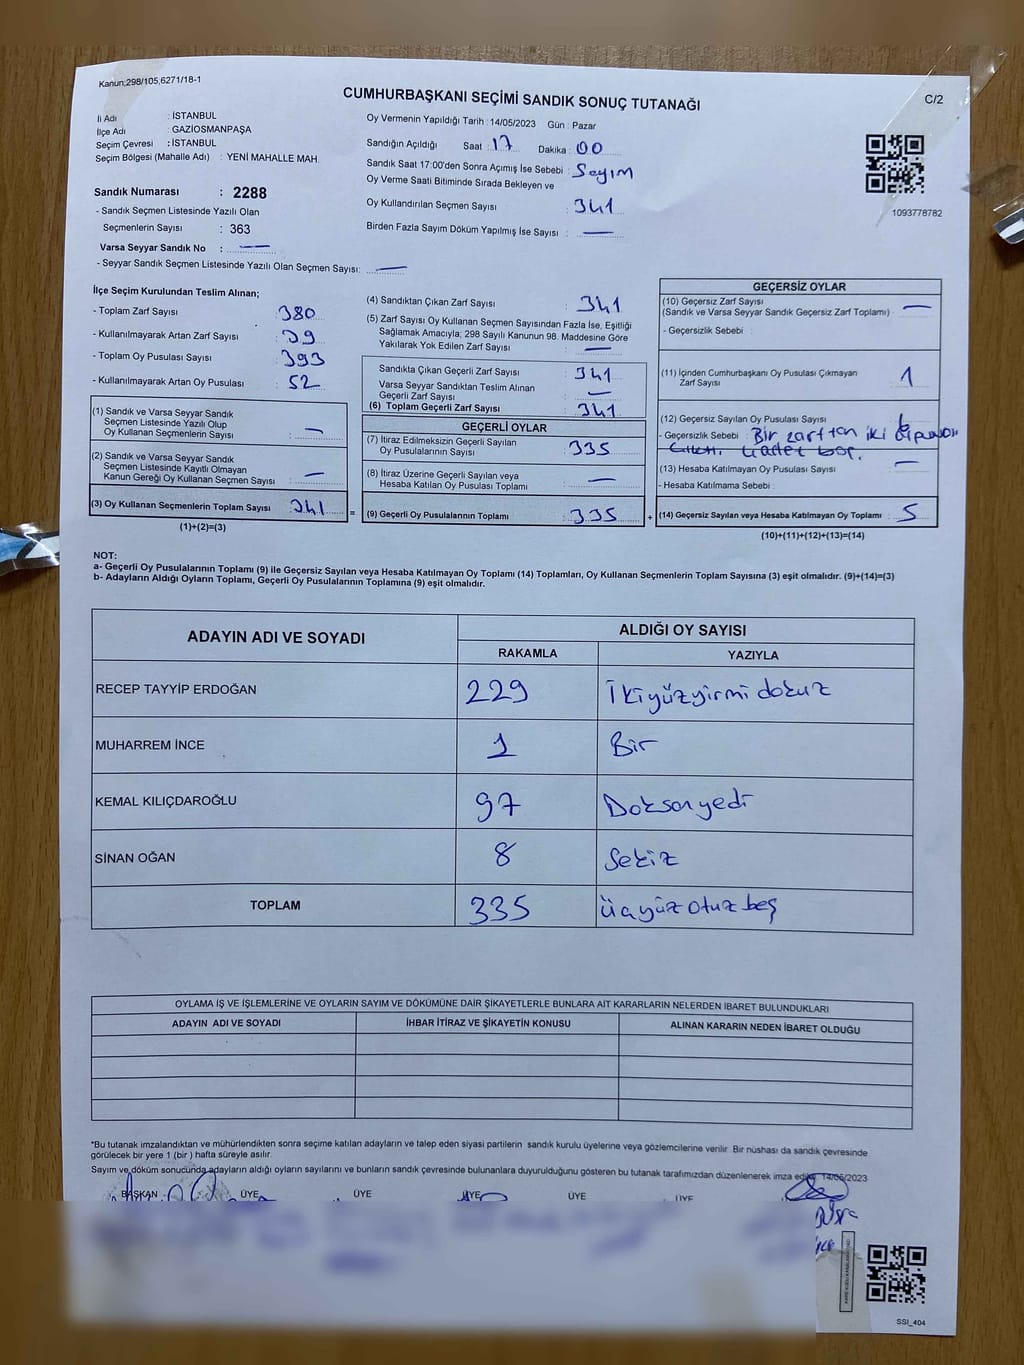 Kanun:298/105,6271/18-1
CUMHURBAŞKANI SEÇİMİ SANDIK SONUÇ TUTANAĞI
C/2
İl Adı : İSTANBUL
İlçe Adı : GAZİOSMANPAŞA
Seçim Çevresi : İSTANBUL
Seçim Bölgesi (Mahalle Adı) : YENİ MAHALLE MAH.
Sandık Numarası : 2288
- Sandık Seçmen Listesinde Yazılı Olan
Seçmenlerin Sayısı : 363
Varsa Seyyar Sandık No : —
- Seyyar Sandık Seçmen Listesinde Yazılı Olan Seçmen Sayısı: —
Oy Vermenin Yapıldığı Tarih : 14/05/2023 Gün : Pazar
Sandığın Açıldığı Saat : 17 Dakika : 00
Sandık Saat 17:00'den Sonra Açımış İse Sebebi : Sayım
Oy Verme Saati Bitiminde Sırada Bekleyen ve
Oy Kullandırılan Seçmen Sayısı : 341
Birden Fazla Sayım Döküm Yapılmış İse Sayısı : —
1093778782
İlçe Seçim Kurulundan Teslim Alınan;
- Toplam Zarf Sayısı : 380
- Kullanılmayarak Artan Zarf Sayısı : 39
- Toplam Oy Pusulası Sayısı : 393
- Kullanılmayarak Artan Oy Pusulası : 52
(1) Sandık ve Varsa Seyyar Sandık
Seçmen Listesinde Yazılı Olup
Oy Kullanan Seçmenlerin Sayısı : —
(2) Sandık ve Varsa Seyyar Sandık
Seçmen Listesinde Kayıtlı Olmayan
Kanun Gereği Oy Kullanan Seçmen Sayısı : —
(3) Oy Kullanan Seçmenlerin Toplam Sayısı : 341 =
(1)+(2)=(3)
(4) Sandıktan Çıkan Zarf Sayısı : 341
(5) Zarf Sayısı Oy Kullanan Seçmen Sayısından Fazla İse, Eşitliği
Sağlamak Amacıyla; 298 Sayılı Kanunun 98. Maddesine Göre
Yakılarak Yok Edilen Zarf Sayısı : —
Sandıkta Çıkan Geçerli Zarf Sayısı : 341
Varsa Seyyar Sandıktan Teslim Alınan
Geçerli Zarf Sayısı : —
(6) Toplam Geçerli Zarf Sayısı : 341
GEÇERLİ OYLAR
(7) İtiraz Edilmeksizin Geçerli Sayılan
Oy Pusulalarının Sayısı : 335
(8) İtiraz Üzerine Geçerli Sayılan veya
Hesaba Katılan Oy Pusulası Toplamı : —
(9) Geçerli Oy Pusulalarının Toplamı : 335 +
GEÇERSİZ OYLAR
(10) Geçersiz Zarf Sayısı
(Sandık ve Varsa Seyyar Sandık Geçersiz Zarf Toplamı) : —
- Geçersizlik Sebebi :
(11) İçinden Cumhurbaşkanı Oy Pusulası Çıkmayan
Zarf Sayısı : 1
(12) Geçersiz Sayılan Oy Pusulası Sayısı :
- Geçersizlik Sebebi : Bir zarftan iki
(13) Hesaba Katılmayan Oy Pusulası Sayısı : —
- Hesaba Katılmama Sebebi :
(14) Geçersiz Sayılan veya Hesaba Katılmayan Oy Toplamı : 5
(10)+(11)+(12)+(13)=(14)
NOT:
a- Geçerli Oy Pusulalarının Toplamı (9) ile Geçersiz Sayılan veya Hesaba Katılmayan Oy Toplamı (14) Toplamları, Oy Kullanan Seçmenlerin Toplam Sayısına (3) eşit olmalıdır. (9)+(14)=(3)
b- Adayların Aldığı Oyların Toplamı, Geçerli Oy Pusulalarının Toplamına (9) eşit olmalıdır.
ADAYIN ADI VE SOYADI
ALDIĞI OY SAYISI
RAKAMLA YAZIYLA
RECEP TAYYİP ERDOĞAN 229 İkiyüzyirmi dokuz
MUHARREM İNCE 1 Bir
KEMAL KILIÇDAROĞLU 97 Doksanyedi
SİNAN OĞAN 8 Sekiz
TOPLAM 335 üçyüz otuz beş
OYLAMA İŞ VE İŞLEMLERİNE VE OYLARIN SAYIM VE DÖKÜMÜNE DAİR ŞİKAYETLERLE BUNLARA AİT KARARLARIN NELERDEN İBARET BULUNDUKLARI
ADAYIN ADI VE SOYADI İHBAR İTİRAZ VE ŞİKAYETİN KONUSU ALINAN KARARIN NEDEN İBARET OLDUĞU
*Bu tutanak imzalandıktan ve mühürlendikten sonra seçime katılan adayların ve talep eden siyasi partilerin sandık kurulu üyelerine veya gözlemcilerine verilir. Bir nüshası da sandık çevresinde
görülecek bir yere 1 (bir ) hafta süreyle asılır.
Sayım ve döküm sonucunda adayların aldığı oyların sayılarını ve bunların sandık çevresinde bulunanlara duyurulduğunu gösteren bu tutanak tarafımızdan düzenlenerek imza edildi. 14/05/2023
BAŞKAN ÜYE ÜYE ÜYE ÜYE ÜYE
SSI_404